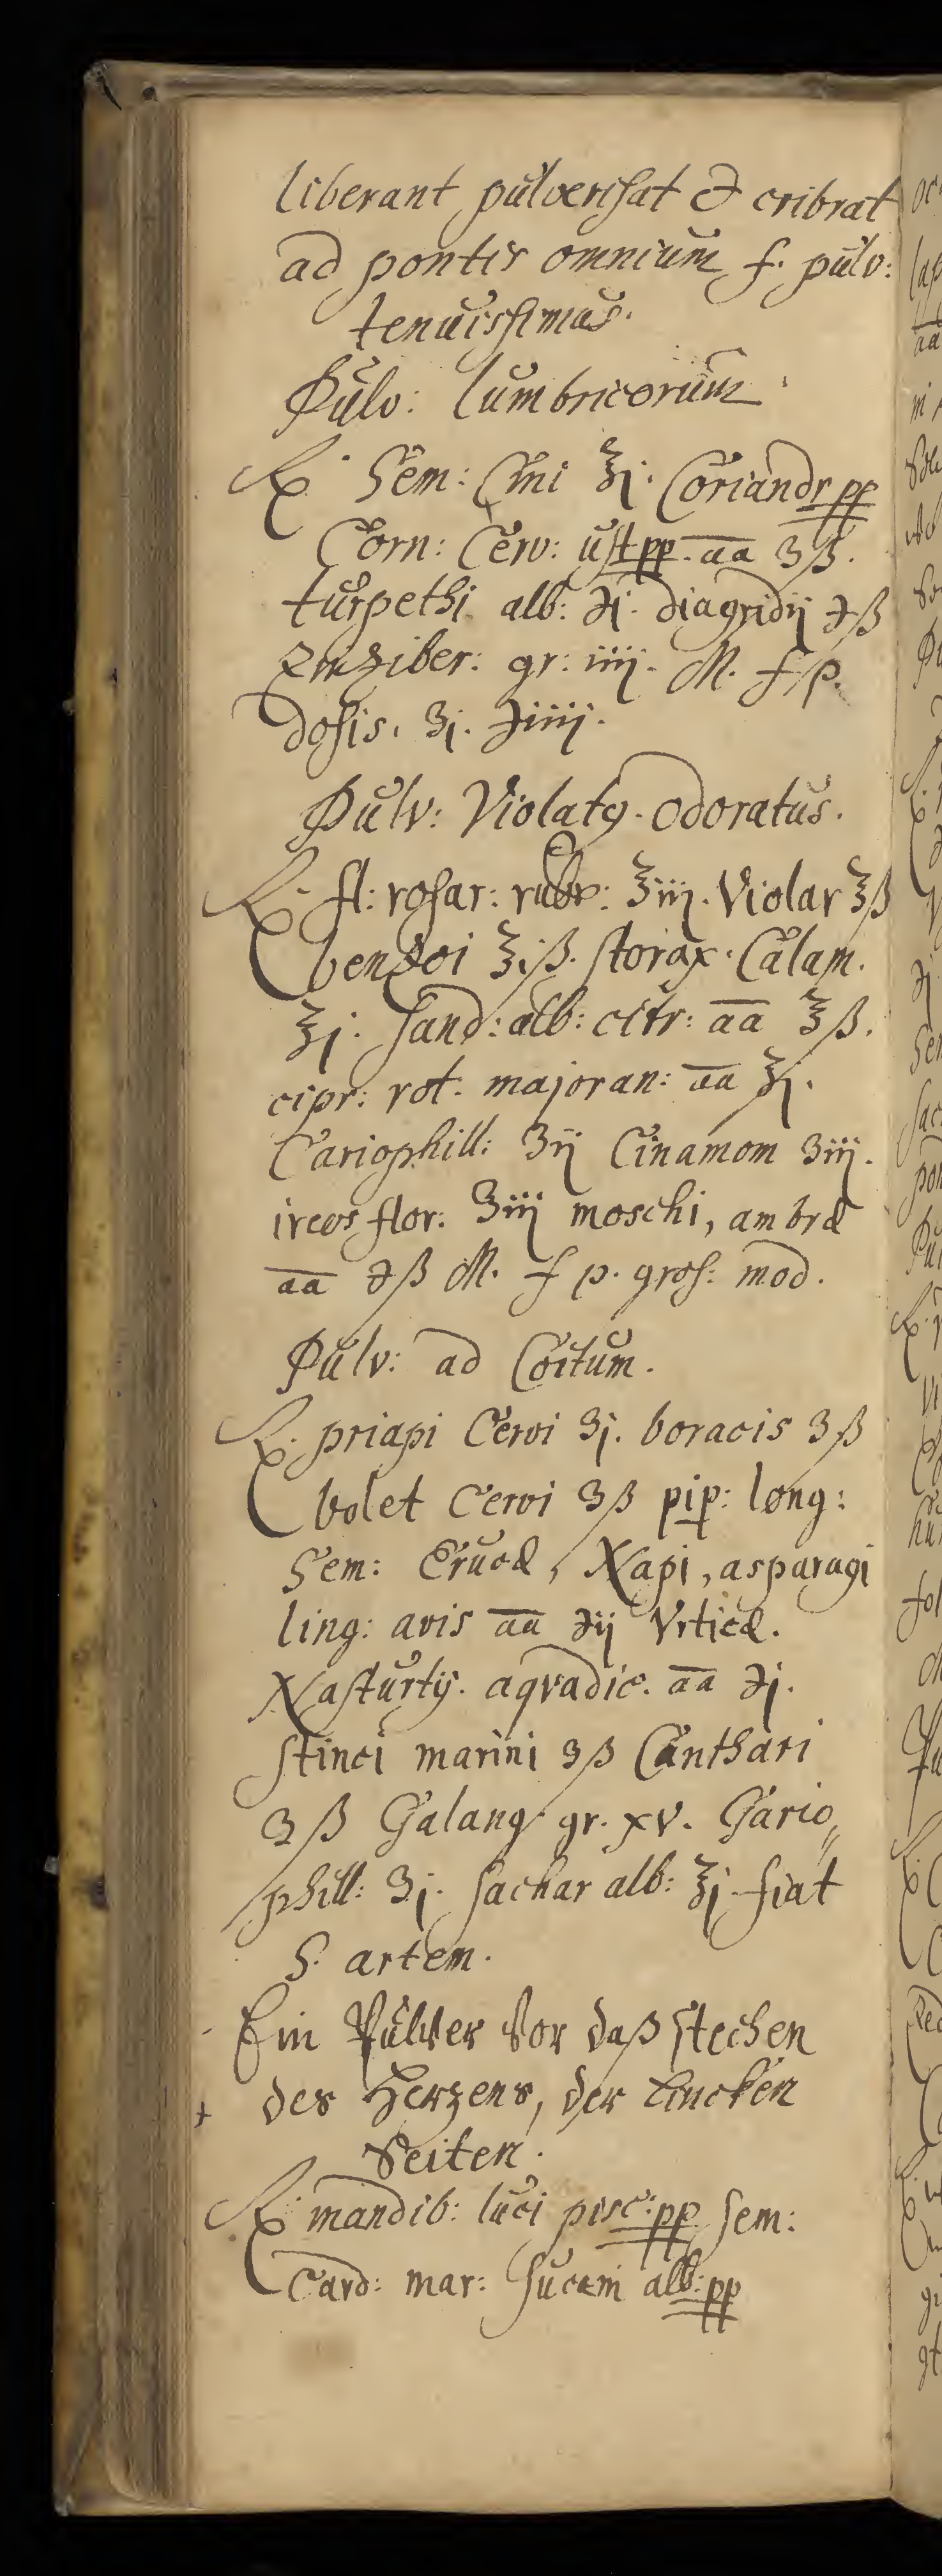 liberant pulverisat & cribrat
ad pontis omnium f. pulv:
tenuissimus.
Pulv: lumbricorum
℞ Sem: Cini ℥j. Coriandr pp
Corn: Cerv: ust pp. aa ʒß.
turpethi alb: ℈j. diagridij ℈ß
Zinziber: gr: iiij. M. f p.
dosis. ʒj. ℈iiij.
Pulv: Violatꝰ. Odoratus.
℞ fl: rosar: rubr: ℥iij. Violar ℥ß
benzoi ℥jß. storax. Calam.
℥j. sand: alb: citr: aa ℥ß.
cipr: rot. majoran: aa ℥j.
Cariophill: ʒij Cinamom ʒiij.
ireos flor: ʒiij moschi, ambræ
aa ℈ß M. f p. gros: mod.
Pulv: ad Coitum.
℞ priapi Cervi ʒj. boracis ʒß
bolet Cervi ʒß pip: long:
Sem: Erucæ, Napi, asparagi
ling: avis aa ℈ij Vrticæ.
Nasturtij. aqvadic. aa ℈j.
stinci marini ʒß Canthari
ʒß Galang gr. xv. Gario,,
phill: ʒj. sachar alb: ℥j fiat
S. artem.
Ein Pulver vor daß stechen
+ des Herzens, der lincken
Seiten.
℞ mandib: luci pisc: pp sem:
Card: mar: sucein alb: pp